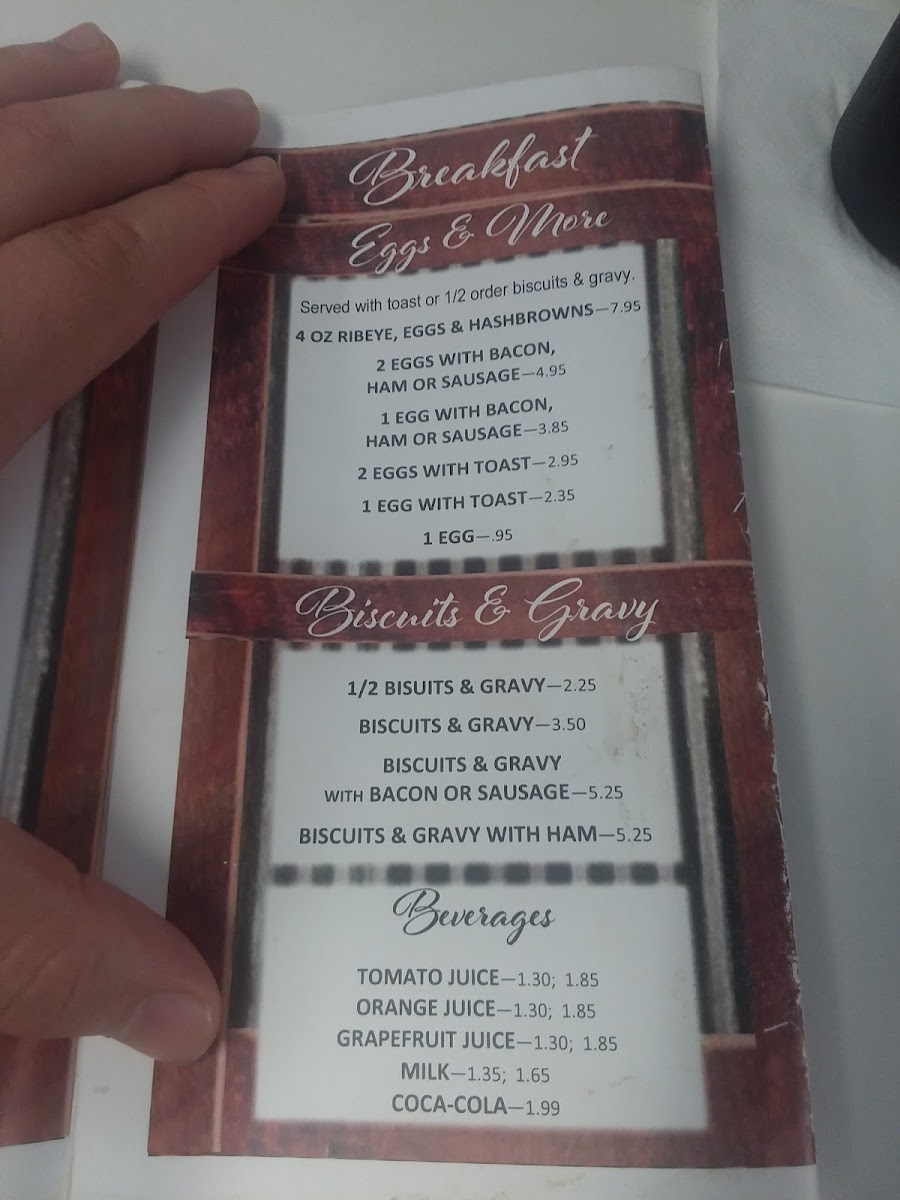 Breakfast
Eggs & More
Served with toast or 1/2 order biscuits & gravy.
4 OZ RIBEYE, EGGS & HASHBROWNS—7.95
2 EGGS WITH BACON,
HAM OR SAUSAGE—4.95
1 EGG WITH BACON,
HAM OR SAUSAGE—3.85
2 EGGS WITH TOAST—2.95
1 EGG WITH TOAST—2.35
1 EGG—.95
Biscuits & Gravy
1/2 BISUITS & GRAVY—2.25
BISCUITS & GRAVY—3.50
BISCUITS & GRAVY
WITH BACON OR SAUSAGE—5.25
BISCUITS & GRAVY WITH HAM—5.25
Beverages
TOMATO JUICE—1.30; 1.85
ORANGE JUICE—1.30; 1.85
GRAPEFRUIT JUICE—1.30; 1.85
MILK—1.35; 1.65
COCA-COLA—1.99